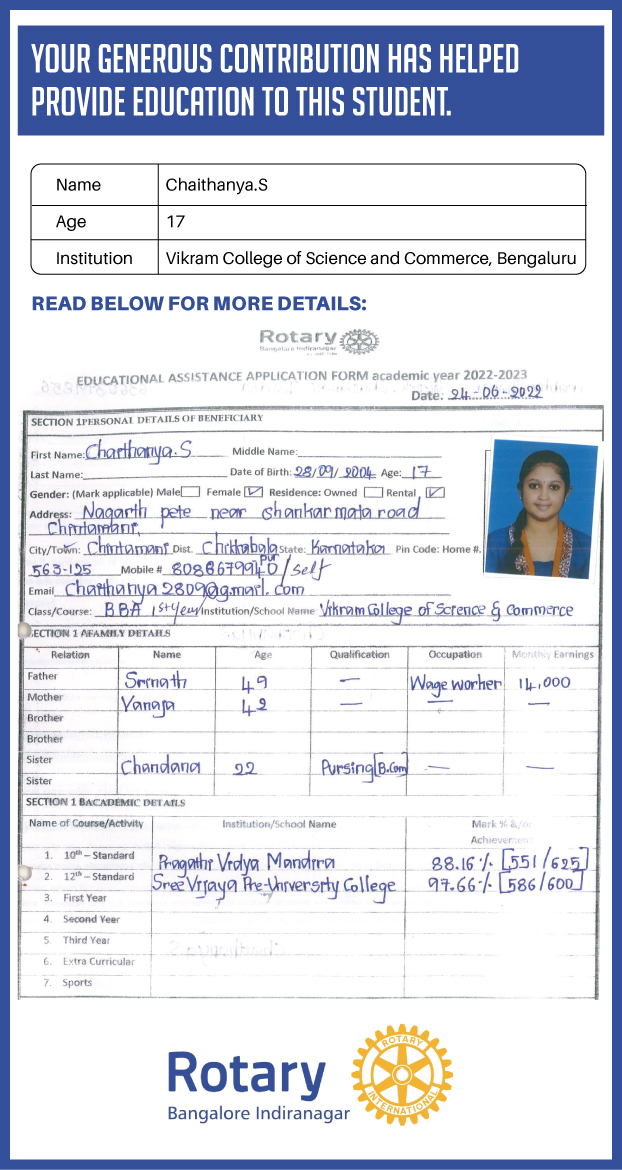 YOUR GENEROUS CONTRIBUTION HAS HELPED
PROVIDE EDUCATION TO THIS STUDENT.
Name Chaithanya.S
Age 17
Institution Vikram College of Science and Commerce, Bengaluru
READ BELOW FOR MORE DETAILS:
Rotary
Bangalore Indiranagar
EDUCATIONAL ASSISTANCE APPLICATION FORM academic year 2022-2023
Date: 24-06-2022
SECTION 1PERSONAL DETAILS OF BENEFICIARY
First Name: Chaithanya.S Middle Name:
Last Name: Date of Birth: 28/09/2004 Age: 17
Gender: (Mark applicable) Male Female ✓ Residence: Owned Rental ✓
Address: Nagarth pete near shankar mata road
Chintamani,
City/Town: Chintamani Dist. Chikkabalapur State: Karnataka Pin Code: Home #.
563-125 Mobile # 8088679940/self
Email Chaithanya2809@gmail.com
Class/Course: BBA 1st year/Institution/School Name Vikram College of Science & Commerce
SECTION 1 AFAMILY DETAILS
Relation Name Age Qualification Occupation Monthly Earnings
Father Srinath 49 — Wage worker 14,000
Mother Vanaja 42 — — —
Brother
Brother
Sister Chandana 22 Pursing[B.Com] — —
Sister
SECTION 1 BACADEMIC DETAILS
Name of Course/Activity Institution/School Name Mark % &/or
Achievement
1. 10th – Standard Pragathi Vidya Mandira 88.16% [551/625]
2. 12th – Standard Sree Vijaya Pre-University College 97.66% [586/600]
3. First Year
4. Second Year
5. Third Year
6. Extra Curricular
7. Sports
Rotary
Bangalore Indiranagar
ROTARY
INTERNATIONAL